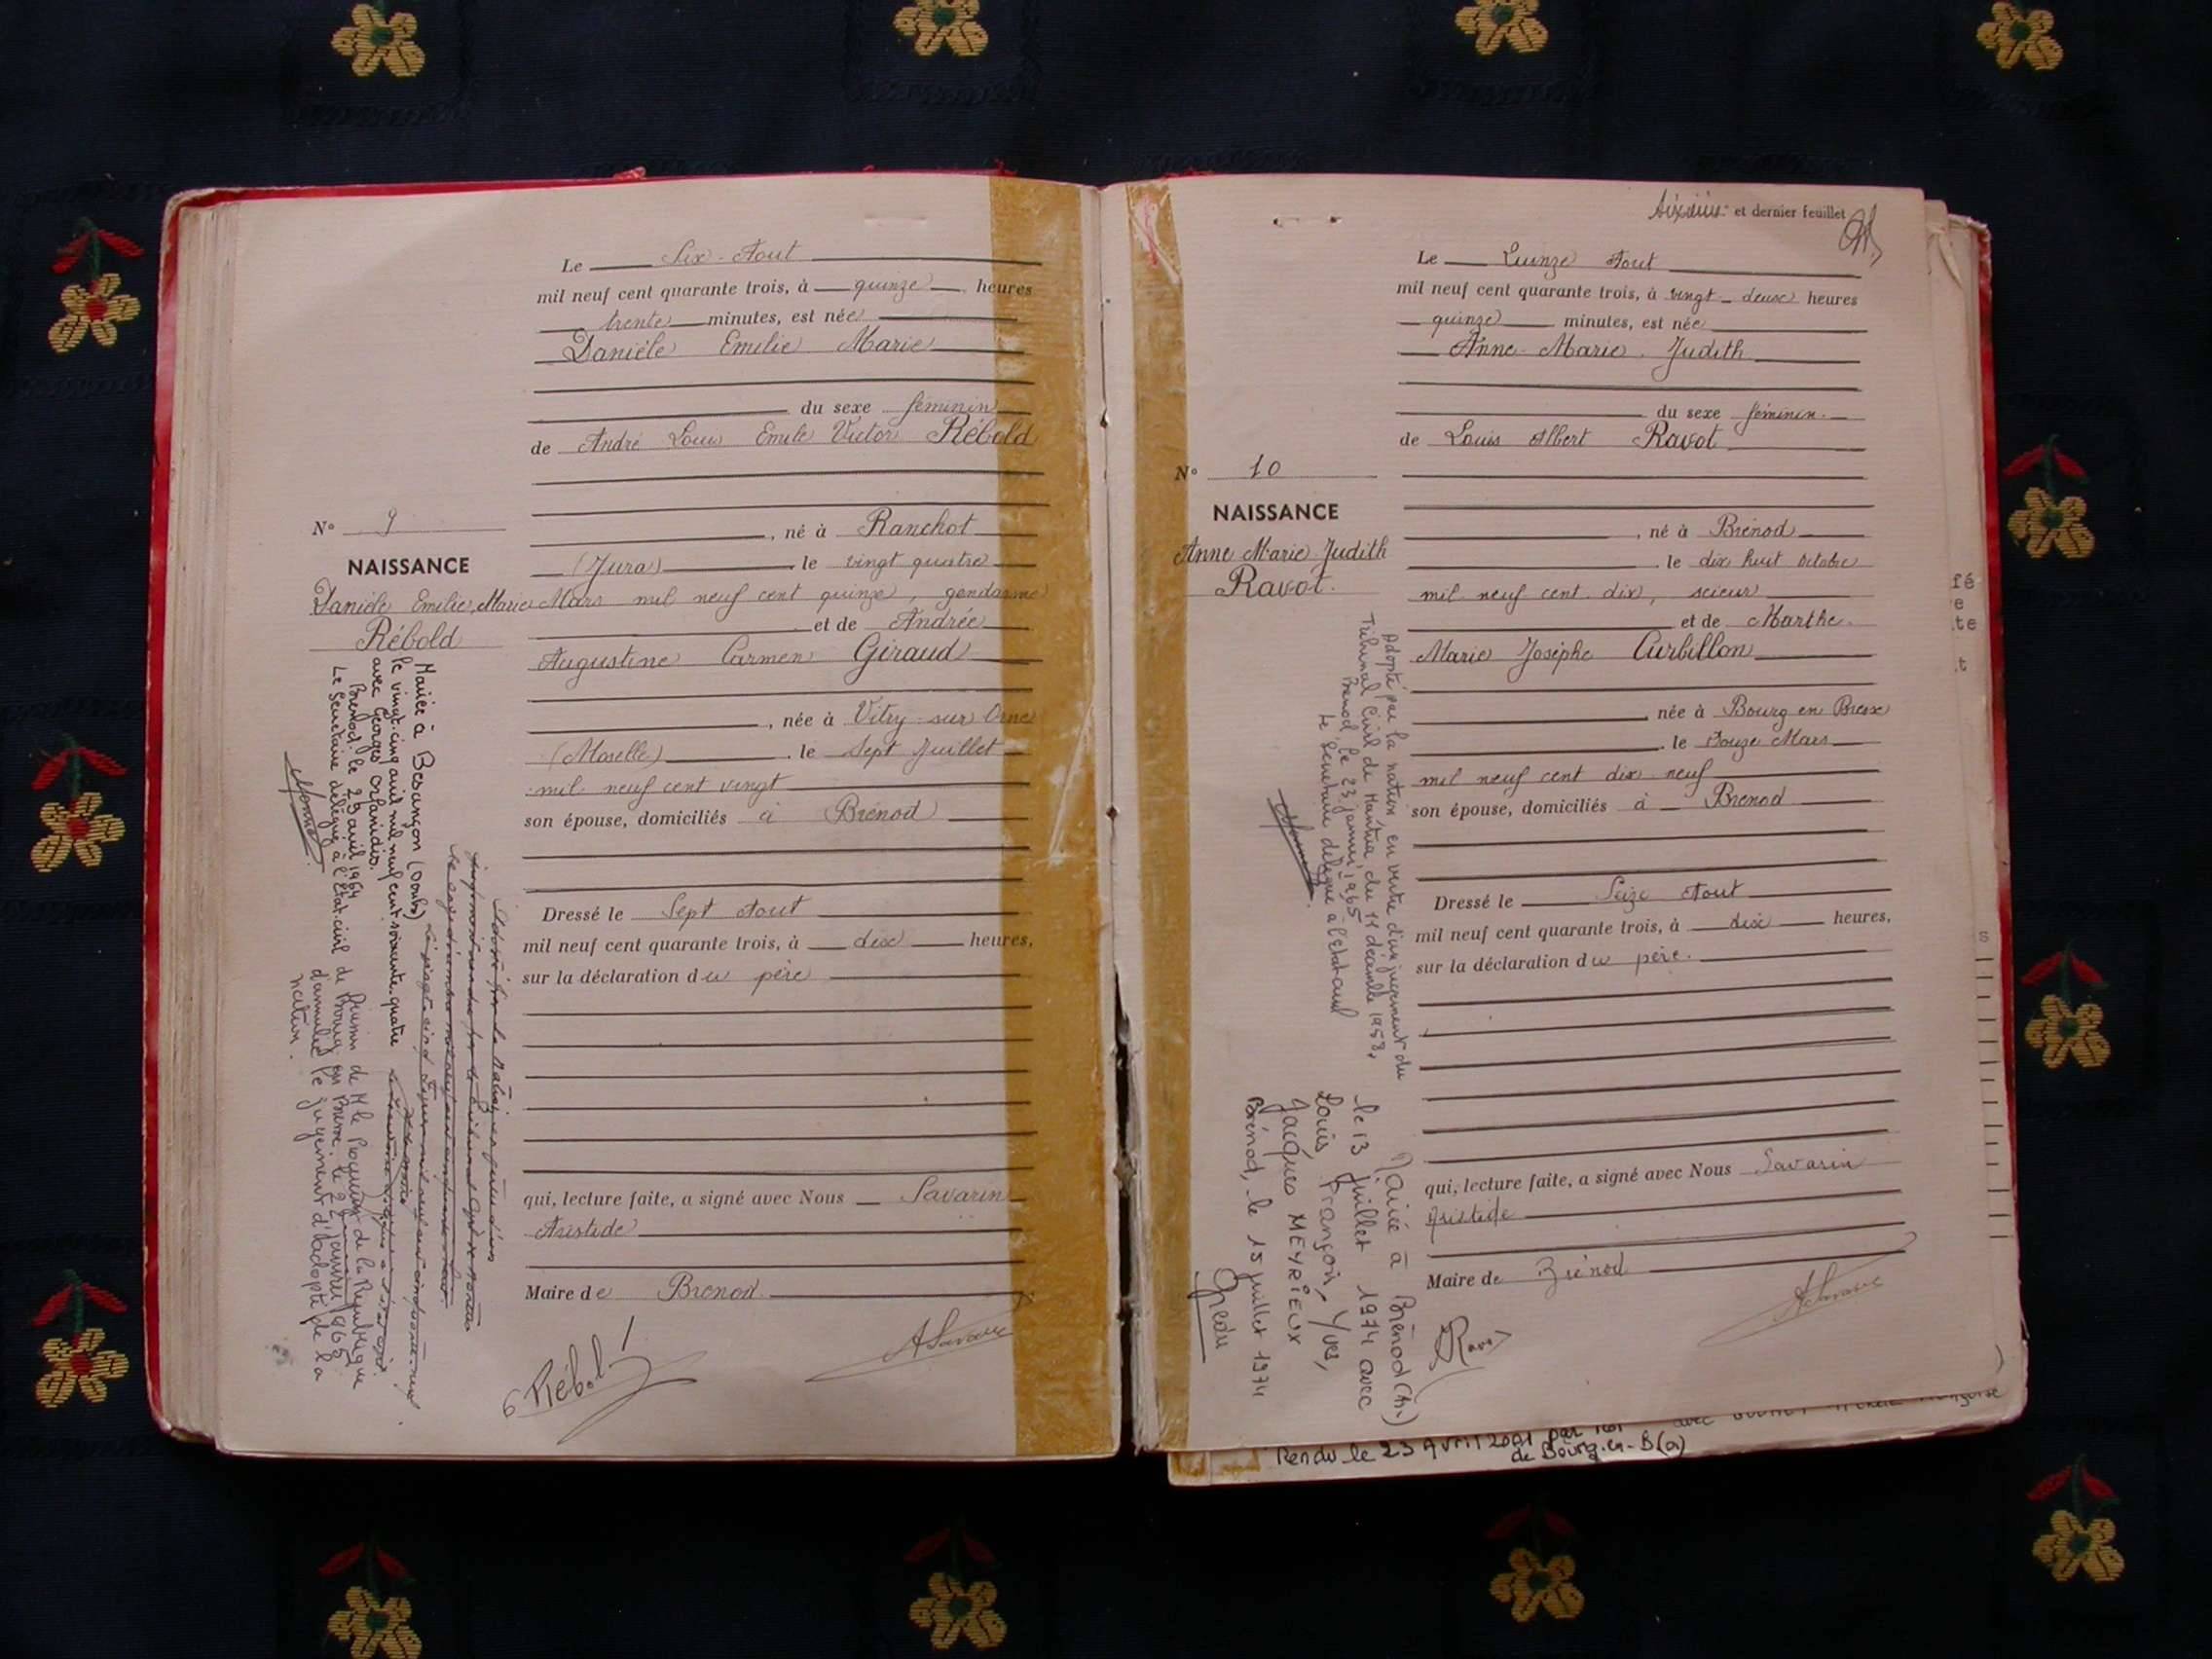 Le Six Aout
mil neuf cent quarante trois, à quinze heures
trente minutes, est née
Danièle Emilie Marie
du sexe féminin
de André Louis Emile Victor Rébold
N° 9
, né à Ranchot
NAISSANCE
(Jura) le vingt quatre
Danièle Emilie Marie
Mars mil neuf cent quinze, gendarme
Rébold
et de Andrée
Augustine Carmen Giraud
, née à Vitry-sur Orne
(Moselle) . le Sept Juillet
mil neuf cent vingt
son épouse, domiciliés à Brénod
Dressé le Sept Aout
mil neuf cent quarante trois, à dix heures,
sur la déclaration du père
qui, lecture faite, a signé avec Nous Savarin
Aristide
Maire de Brénod
Rébold
ASavarin
Mariée à Besançon (Doubs)
le vingt-cinq avril mil neuf cent soixante-quatre
avec Georges Orfanidis.
Brénod, le 29 avril 1964
Le Secrétaire délégué à l'Etat-civil
de M le Procureur de la République
de Bourg en Bresse, le 22 janvier 1965
d'annuler le jugement d'adopté de la
nation.
et dernier feuillet
Le Quinze Aout
mil neuf cent quarante trois, à vingt-deux heures
quinze minutes, est née
Anne-Marie Judith
du sexe féminin.
de Louis Albert Ravot
N° 10
NAISSANCE
, né à Brénod
Anne Marie Judith
. le dix huit Octobre
Ravot.
mil neuf cent dix, scieur
et de Marthe
Marie Josèphe Curbillon
, née à Bourg en Bresse
. le Douze Mars
mil neuf cent dix neuf
son épouse, domiciliés à Brénod
Dressé le Seize Aout
mil neuf cent quarante trois, à dix heures,
sur la déclaration du père.
qui, lecture faite, a signé avec Nous Savarin
Aristide
Maire de Brénod
Ravot
ASavarin
Adopté par la nation, en vertu d'un jugement du
Tribunal Civil de Nantua du 11 décembre 1958,
Brénod, le 23 janvier 1965
Le Secrétaire délégué à l'Etat-civil
Mariée à Brénod (Ain)
le 13 juillet 1974 avec
Louis, François, Yves,
Jacques MEYRIEUX
Brénod, le 15 juillet 1974
Rendu le 23 Avril 2001 par
de Bourg-en-B